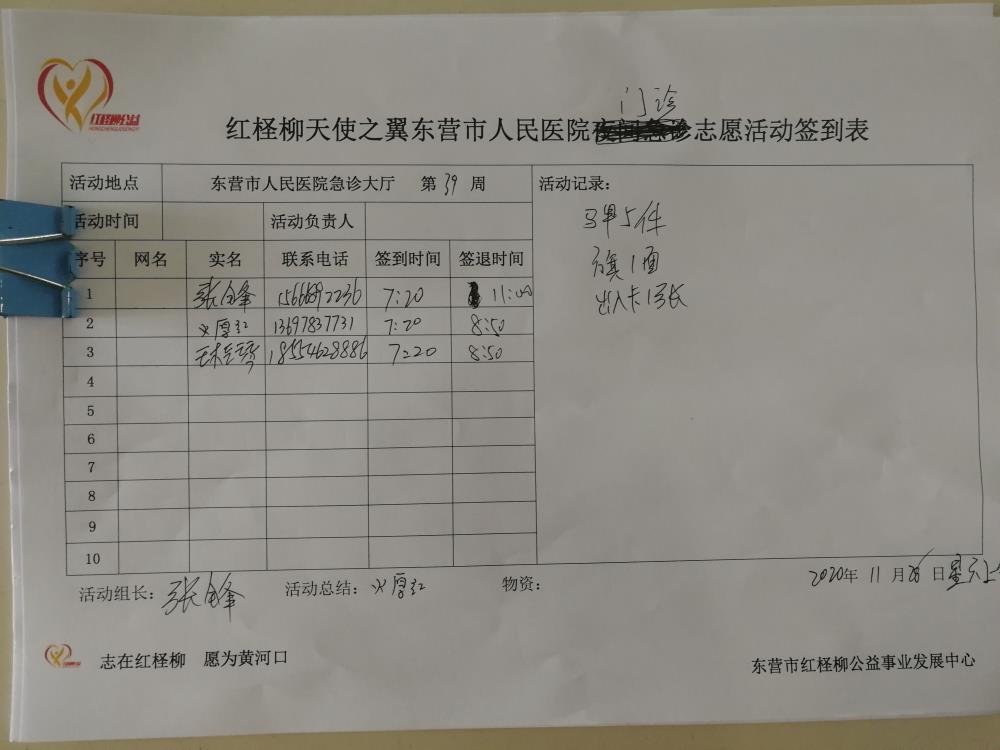 红柽柳公益
门诊
红柽柳天使之翼东营市人民医院夜间急诊志愿活动签到表
活动地点 东营市人民医院急诊大厅 第39周
活动时间 活动负责人
序号 网名 实名 联系电话 签到时间 签退时间
1 7:20 11:00
2 13697837731 7:20 8:50
3 18554628886 7:20 8:50
4
5
6
7
8
9
10
活动记录:
5件
旗1面
出入卡
活动组长: 活动总结: 物资:
2020年 11月 日
志在红柽柳 愿为黄河口
东营市红柽柳公益事业发展中心